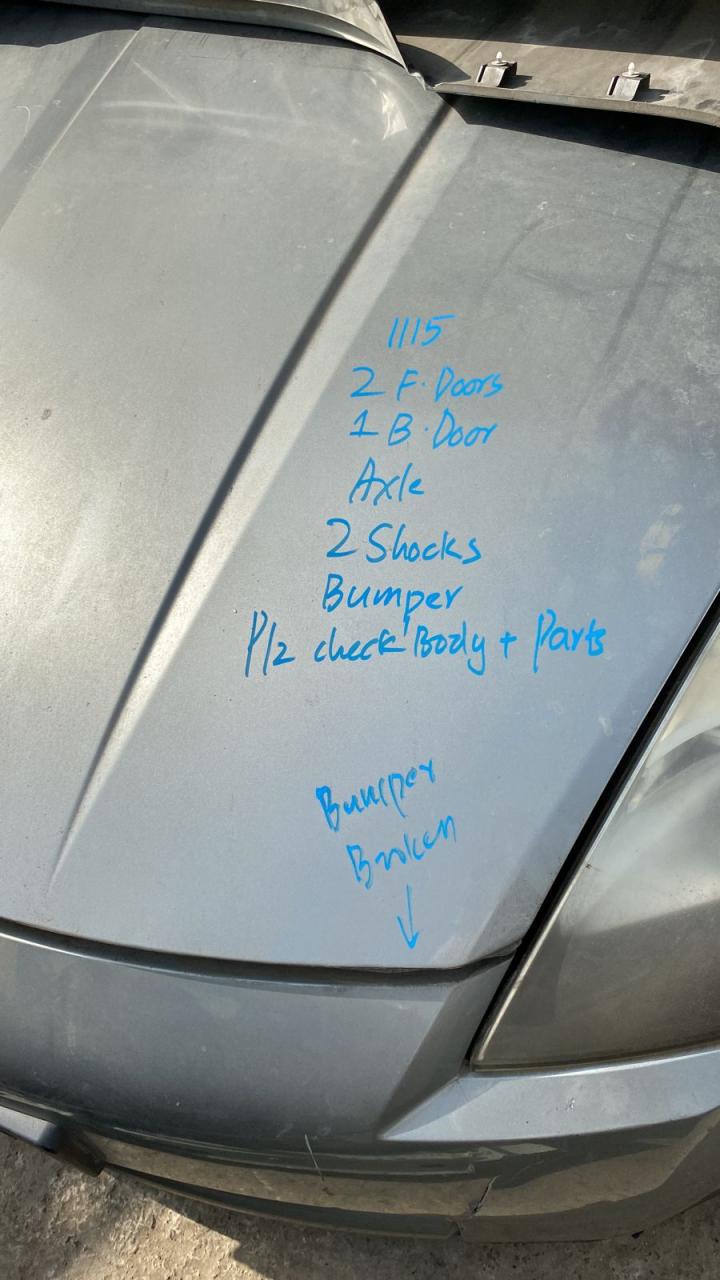 1115
2 F. Doors
1 B. Door
Axle
2 Shocks
Bumper
Plz check Body + Parts
Bumper
Broken